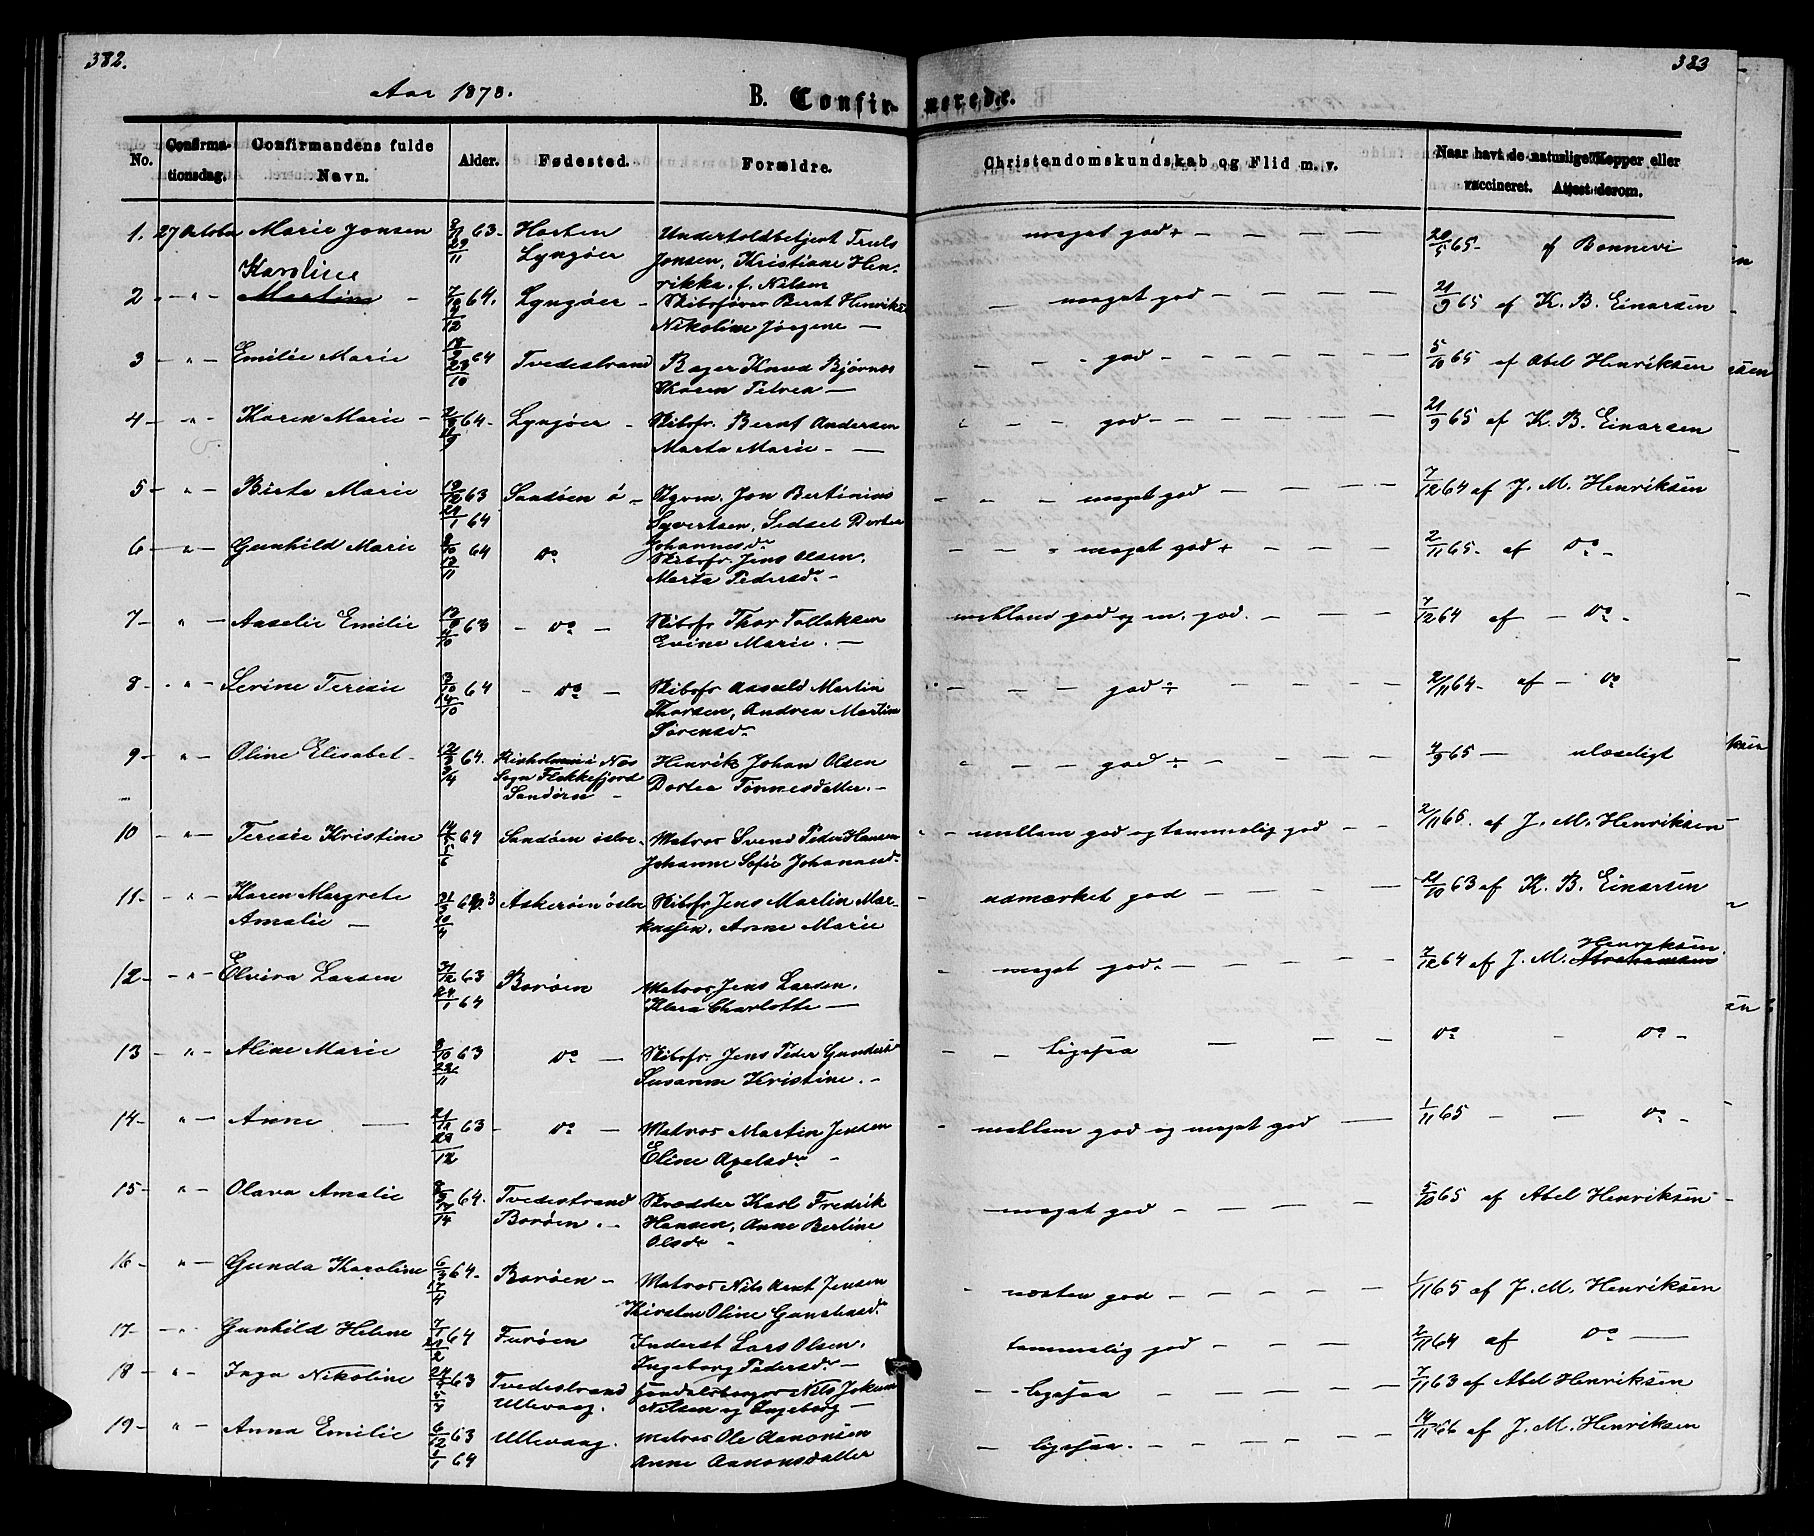 382.
383
Aar 1878.
B. Confir-
merede.
No.
Confirma-
tionsdag.
Confirmandens fulde
Navn.
Alder.
Fødested.
Forældre.
Christendomskundskab og Flid m. v.
Naar havt de naturlige Kopper eller
vaccineret. Attest derom.
1. 27 October Marie Jensen 63 Hasten
Lyngøer
Undertoldbetjent Truls
Jensen, Kristiane Hen-
rikka f. Nilsen
meget god + 65 af Bonnevi
2 Karoline
Martine 64. Lyngøer Skibsfører Bernt Henriks
Nikoline Jørgene
meget god 21/9 65 af K. B. Einarsen
3 Emilie Marie 64 Tvedestrand Bager Knud Bjørnes
Karen Petrea
god 5/10 65 af Abel Henriksen
4 Karen Marie 64 Lyngøer Skibsfr. Bernt Andersen
Marta Marie
god 21/9 65 af K. B. Einarsen
5 Birte Marie 63 Sandøen ø
64
Jon Bertinius
Syvertsen, Sidsel Dortea
Johannesdr
meget god 7/12 64 af J. M. Henriksen
6 Gunhild Marie 64 do Skibsfr. Jens Olsen.
Marta Pedersdr
meget god + 2/11 65 af do
7 Aaselie Emilie 63 do Skibsfr Thor Tallaksen
Evine Marie.
mellem god og m. god. 7/12 64 af do
8 Levine Teresie 64 do Skibsfr Aasuld Martin
Thorsen, Andrea Martine
Sørensdr
god ÷ 2/11 64 af do
9 Oline Elisabet 64. i Nes
Sogn Flekkefjord
Sandøen
Henrik Johan Olsen
Dortea Tønnesdatter.
god ÷ 4/9 65 ulæseligt
10 Teresie Kristine 64 Sandøen østre Matros Svend Peder Hansen
Johanne Sofie Johannesdr
mellem god og temmelig god 2/11 65. af J. M. Henriksen
11 Karen Margrete
Amalie
Askerøen østre Skibsfr Jens Martin Mar-
kussen. Anne Marie
udmærket god 21/10 63 af K. B. Einarsen
12 Elvira Larsen 63
64
Borøen Matros Jens Larsen.
Klara Charlotte
meget god 7/12 64 af J. M. Henriksen
13 Aline Marie 63 do Skibsfr. Jens Peder Gunders
Susanne Kristine.
ligesaa do do
14 Anne 63 do Matros Martin Jensen
Eline Axelsdr
mellem god og meget god 1/11 65 do
15 Olava Amalie 64. Tvedestrand
Borøen.
Skrædder Karl Fredrik
Hansen, Anne Bertine
Olsdr
meget god 5/10 65 af Abel Henriksen
16 Gunda Karoline 64 Borøen Matros Nils Arnt Jensen
Kirsten Oline Gunstensdr
næsten god 1/11 65 af J. M. Henriksen
17 Gunhild Helene 64 Furøen Inderst Lars Olsen.
Ingeborg Pedersdr
temmelig god 2/11 64 af do
18 Inga Nikoline 63 Tvedestrand
Ullevaag.
Nils Jokum
Nilsen og Ingeborg
ligesaa 7/11 63 af Abel Henriksen
19 Anna Emilie 6/12 63
64
Ullevaag. Matros Ole Aanonsen
Anne Aanonsdatter
ligesaa. 14/11 66 af J. M. Henriksen